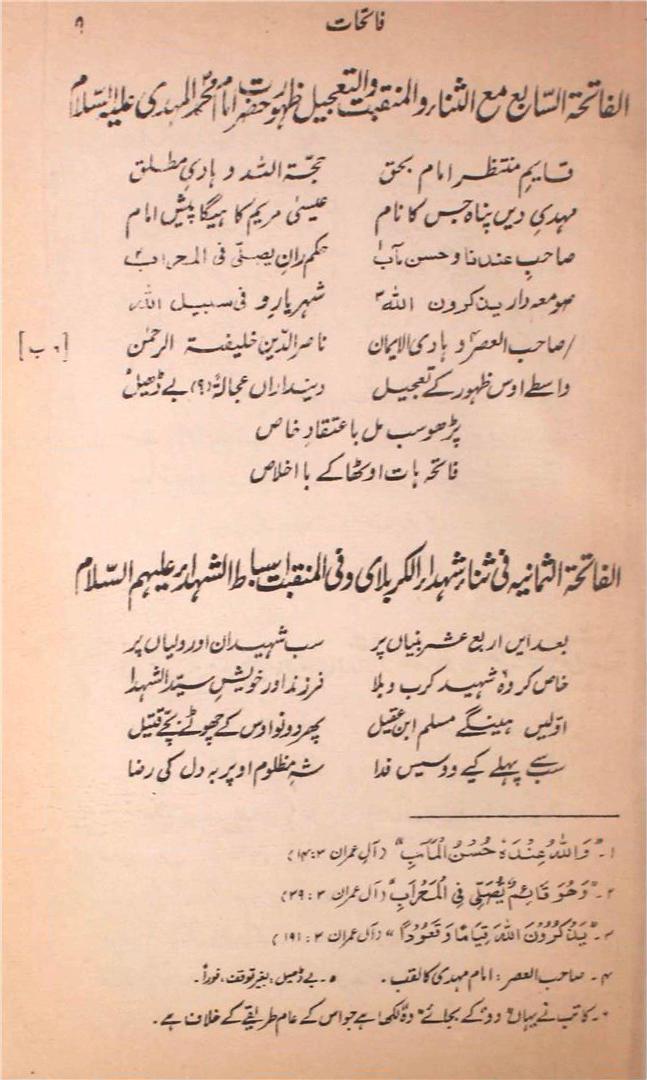 فاتحات ۹
الفاتحۃ السّابع مع الثناء والمنقبت والتعجیل ظہورت حضرت امام محمد المہدی علیہ السّلام
قایمِ منتظر امام بحق حجّۃ اللہ و ہادیِ مطلق
مہدیِ دیں پناہ جس کا نام عیسیٰ مریم کا ہیگا پیش امام
صاحبِ عندنا و حسن مآب۱ حکم رانِ یصلّی فی المحراب۲
صومعہ دار یذکرون اللہ۳ شہریارِ و فی سبیل اللہ
/صاحب العصر۴ و ہادی الایمان ناصر الدّین خلیفۃ الرحمٰن [۶ ب]
واسطے اوس ظہور کے تعجیل دینداراں عجالۂ (؟) بے ڈھیل۵
پڑھو سب مل با عتقادِ خاص
فاتحہ ہات اوٹھا کے با اخلاص
الفاتحۃ الثمانیہ فی ثناءِ شہداءِ الکربلای وفی المنقبت اسباط الشہداءِ علیہم السّلام
بعد ایں اربع عشر بنیاں پر سب شہیدان اور ولیاں پر
خاص کر وہ۶ شہید کرب و بلا فرزند اور خویشِ سیّد الشہدا
اوّلیں ہینگے مسلم ابن عقیل پھر دونو اوس کے چھوٹے بچّے قتیل
سب سے پہلے کیے وو سیس فدا شہِ مظلوم اوپر بہ دل کی رضا
۱۔ "وَاللہُ عِنْدَہٗ حُسْنُ الْمَآبِ" (آلِ عمران ۳: ۱۴)
۲۔ "وَھُوَ قَائِمٌ یُّصَلِّی فِی الْمِحْرَابِ" (آل عمران ۳: ۳۹)
۳۔ "یَذْکُرُوْنَ اللہَ قِیَامًا وَّ قُعُوْدًا" (آل عمران ۳: ۱۹۱)
۴۔ صاحب العصر: امام مہدی کا لقب۔ ۵۔ بے ڈھیل: بغیر توقف، فوراً۔
۶۔ کاتب نے یہاں "وو" کے بجائے "وہ" لکھا ہے جو اس کے عام طریقے کے خلاف ہے۔